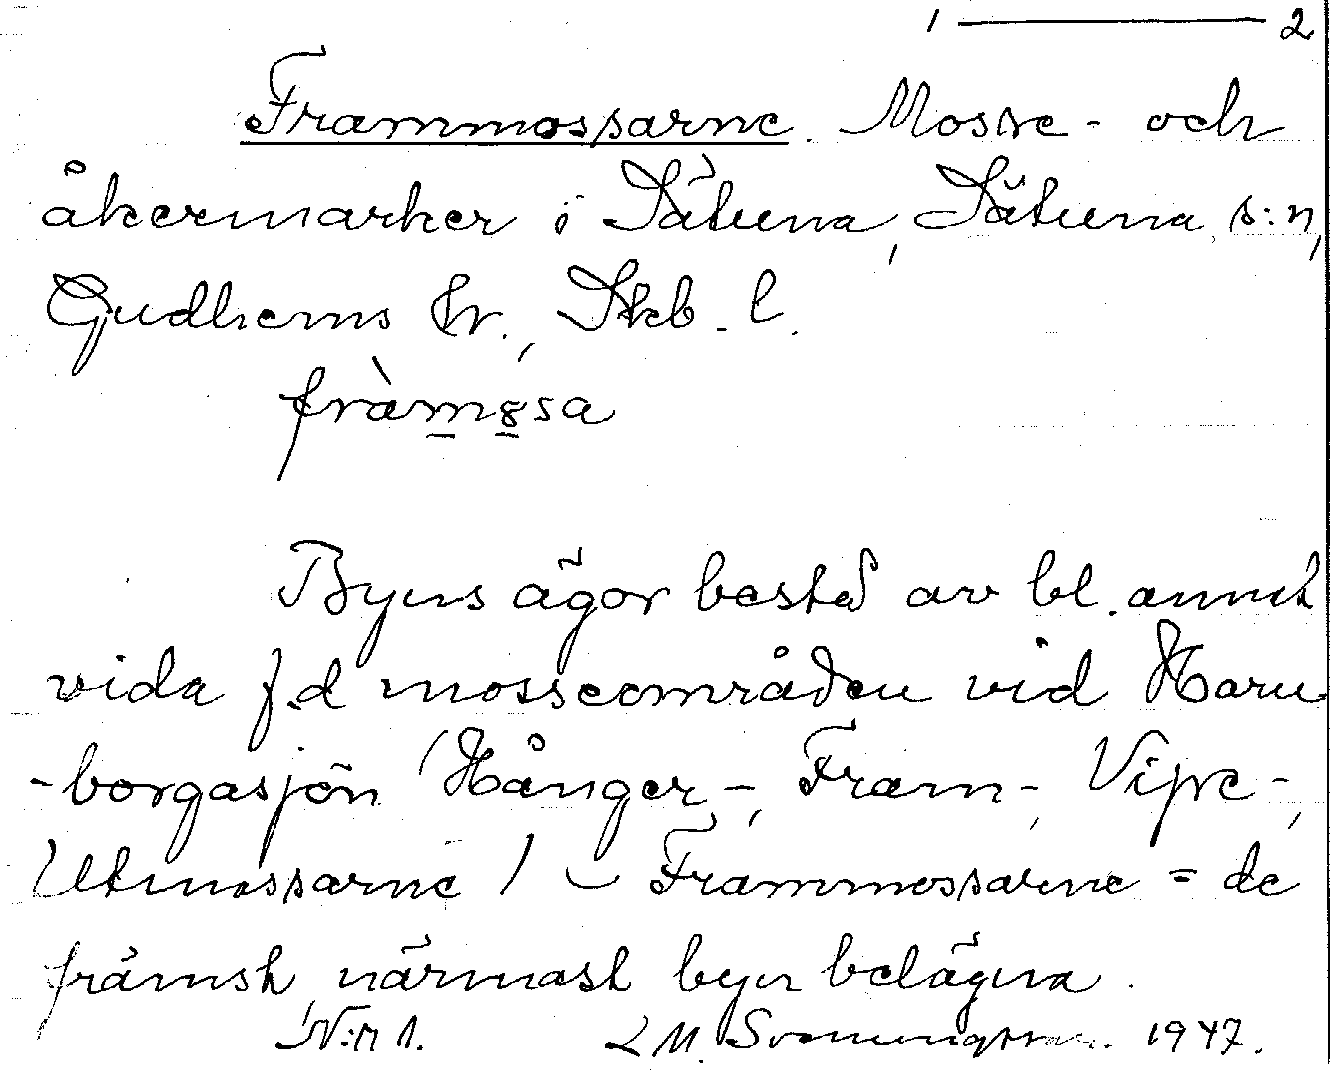 1 — 2
Frammossarne. Mosse- och
åkermarker i Sätuna, Sätuna s:n,
Gudhems hr., Skb. l.
fràmssa
Byns ägor bestå av bl. annat
vida f.d mosseområden vid Horn-
-borgasjön (Hånger-, Fram-, Vipe-,
Utmossarne) – Frammossarne = de
främst, närmast byn belägna.
N:r 1. L M. Svenungsson. 1947.